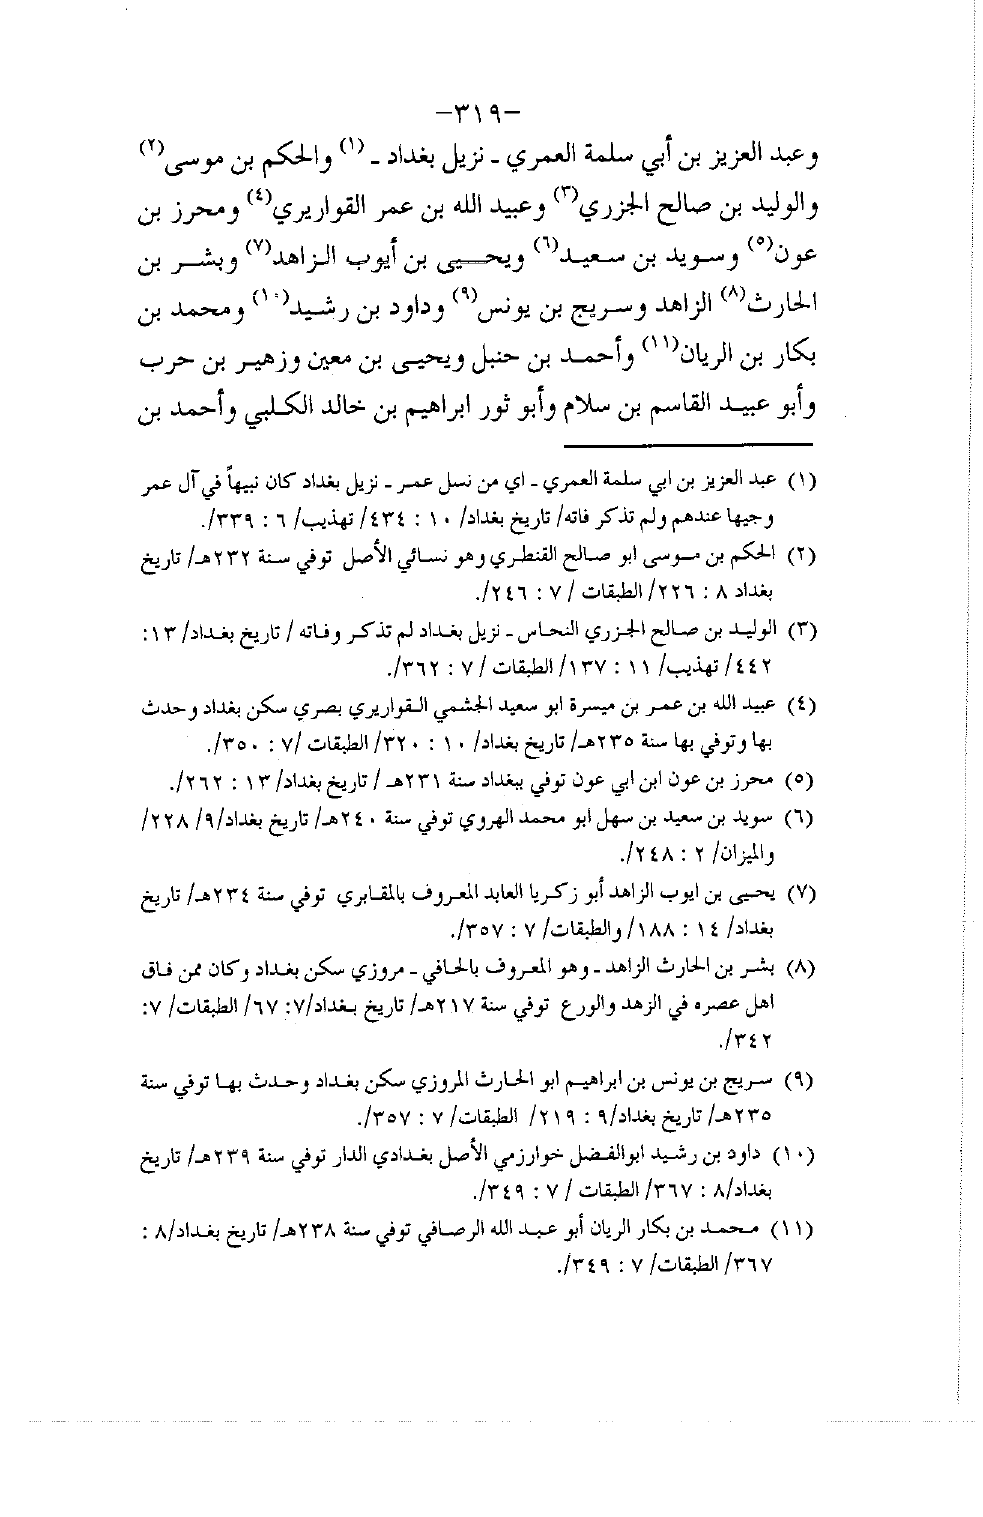 -٣١٩-
وعبد العزيز بن أبي سلمة العمري ـ نزيل بغداد ـ (١) والحكم بن موسى(٢)
والوليد بن صالح الجزري(٣) وعبيد الله بن عمر القواريري(٤) ومحرز بن
عون(٥) وسويد بن سعيد(٦) ويحيى بن أيوب الزاهد(٧) وبشر بن
الحارث(٨) الزاهد وسريج بن يونس(٩) وداود بن رشيد(١٠) ومحمد بن
بكار بن الريان(١١) وأحمد بن حنبل ويحيى بن معين وزهير بن حرب
وأبو عبيد القاسم بن سلام وأبو ثور ابراهيم بن خالد الكلبي وأحمد بن
(١) عبد العزيز بن ابي سلمة العمري ـ اي من نسل عمر ـ نزيل بغداد كان نبيهاً في آل عمر
وجيها عندهم ولم تذكر فاته/ تاريخ بغداد/ ١٠ : ٤٣٤/ تهذيب/ ٦ : ٣٣٩/.
(٢) الحكم بن موسى ابو صالح القنطري وهو نسائي الأصل توفي سنة ٢٣٢هـ/ تاريخ
بغداد ٨ : ٢٢٦/ الطبقات / ٧ : ٢٤٦/.
(٣) الوليد بن صالح الجزري النحاس ـ نزيل بغداد لم تذكر وفاته / تاريخ بغداد/ ١٣:
٤٤٢/ تهذيب/ ١١ : ١٣٧/ الطبقات / ٧ : ٣٦٢/.
(٤) عبيد الله بن عمر بن ميسرة ابو سعيد الجشمي القواريري بصري سكن بغداد وحدث
بها وتوفي بها سنة ٢٣٥هـ/ تاريخ بغداد/ ١٠ : ٣٢٠/ الطبقات /٧ : ٣٥٠/.
(٥) محرز بن عون ابن ابي عون توفي ببغداد سنة ٢٣١هـ / تاريخ بغداد/ ١٣ : ٢٦٢/.
(٦) سويد بن سعيد بن سهل ابو محمد الهروي توفي سنة ٢٤٠هـ/ تاريخ بغداد/٩/ ٢٢٨/
والميزان/ ٢ : ٢٤٨/.
(٧) يحيى بن ايوب الزاهد أبو زكريا العابد المعروف بالمقابري توفي سنة ٢٣٤هـ/ تاريخ
بغداد/ ١٤ : ١٨٨/ والطبقات/ ٧ : ٣٥٧/.
(٨) بشر بن الحارث الزاهد ـ وهو المعروف بالحافي ـ مروزي سكن بغداد وكان ممن فاق
اهل عصره في الزهد والورع توفي سنة ٢١٧هـ/ تاريخ بغداد/٧: ٦٧/ الطبقات/ ٧:
٣٤٢/.
(٩) سريج بن يونس بن ابراهيم ابو الحارث المروزي سكن بغداد وحدث بها توفي سنة
٢٣٥هـ/ تاريخ بغداد/٩ : ٢١٩/ الطبقات/ ٧ : ٣٥٧/.
(١٠) داود بن رشيد ابوالفضل خوارزمي الأصل بغدادي الدار توفي سنة ٢٣٩هـ/ تاريخ
بغداد/٨ : ٣٦٧/ الطبقات / ٧ : ٣٤٩/.
(١١) محمد بن بكار الريان أبو عبد الله الرصافي توفي سنة ٢٣٨هـ/ تاريخ بغداد/٨ :
٣٦٧/ الطبقات/ ٧ : ٣٤٩/.